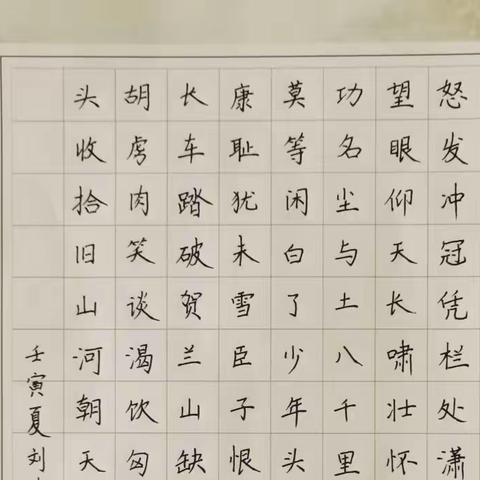 怒发冲冠凭栏处潇
望眼仰天长啸壮怀
功名尘与土八千里
莫等闲白了少年头
康耻犹未雪臣子恨
长车踏破贺兰山缺
胡虏肉笑谈渴饮匈
头收拾旧山河朝天
壬寅夏刘